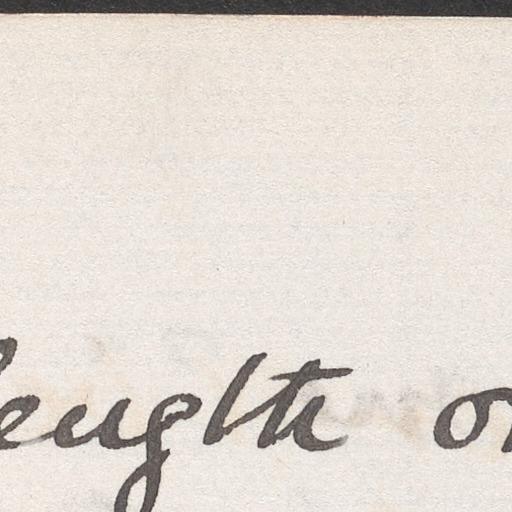 length on